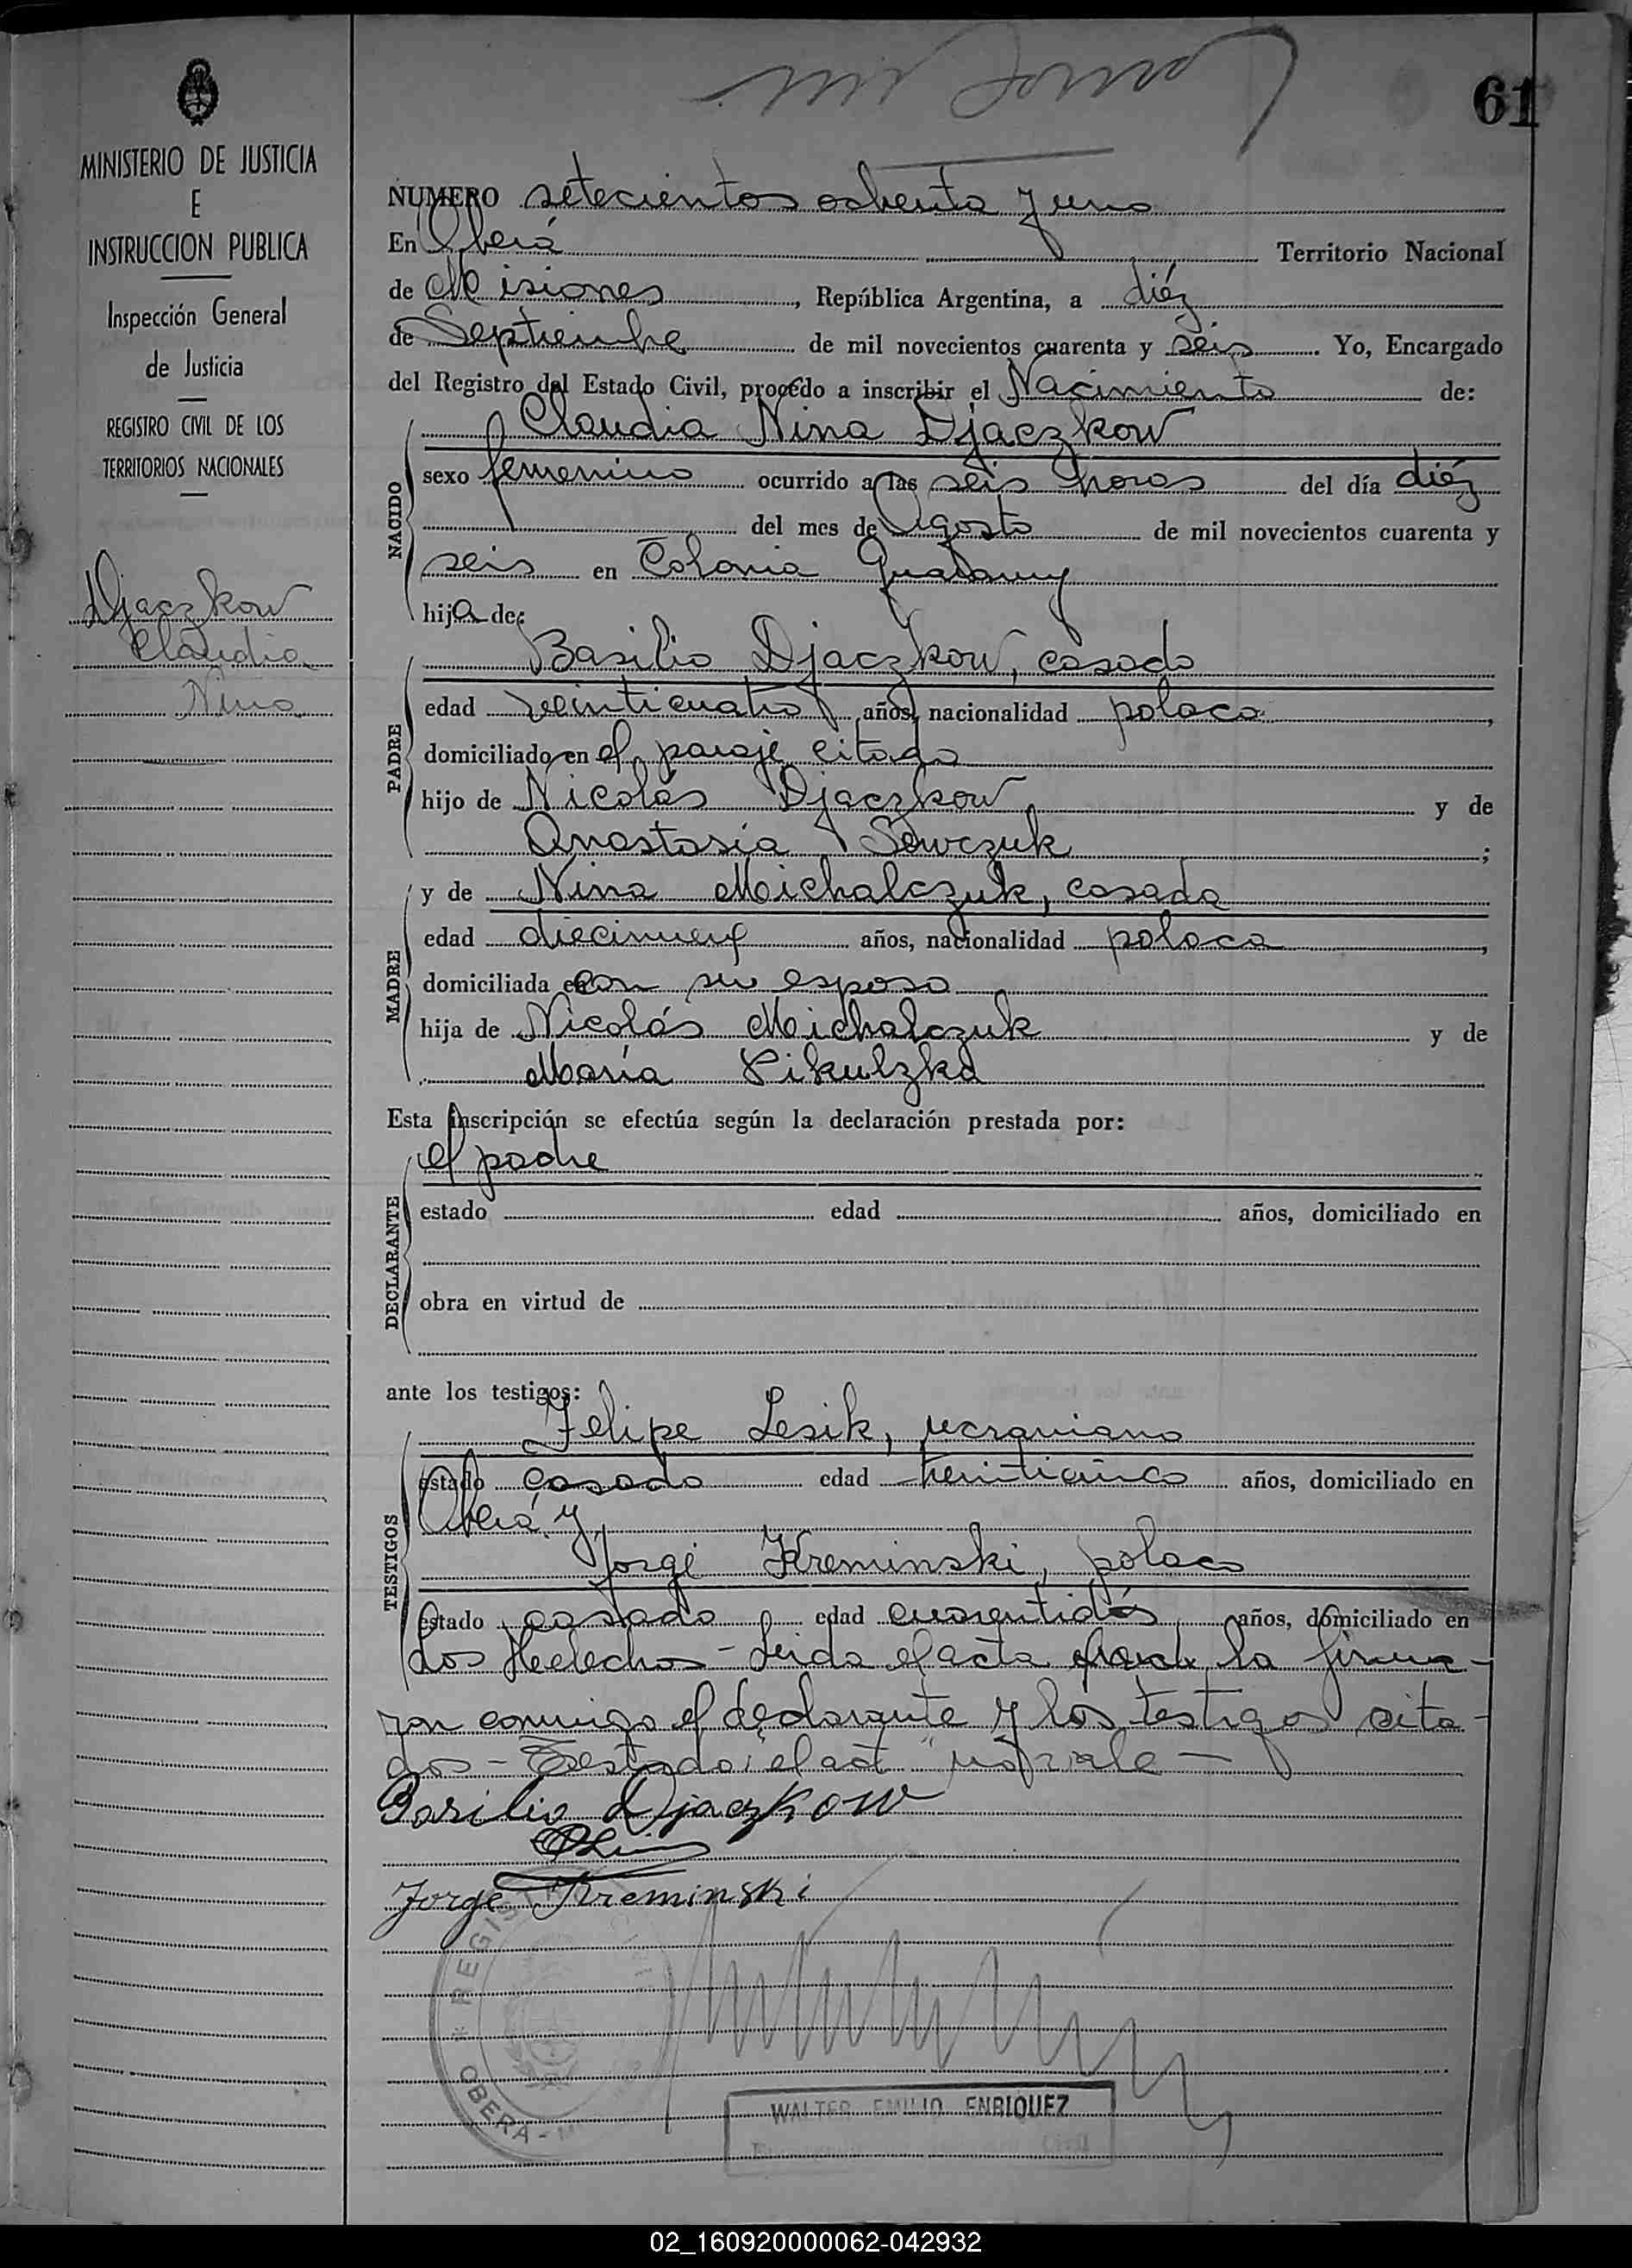 61
MINISTERIO DE JUSTICIA
E
INSTRUCCION PUBLICA
Inspección General
de Justicia
REGISTRO CIVIL DE LOS
TERRITORIOS NACIONALES
Djaczkow
Claudia
Nina
NUMERO setecientos ochenta y uno
En Oberá Territorio Nacional
de Misiones, República Argentina, a diéz
de Septiembre de mil novecientos cuarenta y seis. Yo, Encargado
del Registro del Estado Civil, procedo a inscribir el Nacimiento de:
NACIDO
Claudia Nina Djaczkow
sexo femenino ocurrido a las seis horas del día diéz
del mes de Agosto de mil novecientos cuarenta y
seis en Colonia Guarany
hija de:
PADRE
Basilio Djaczkow, casado
edad veinticuatro años, nacionalidad polaca,
domiciliado en el paraje citado
hijo de Nicolás Djaczkow y de
Anastasia Sewczuk;
MADRE
y de Nina Michalczuk, casada
edad diecinueve años, nacionalidad polaca,
domiciliada en con su esposo
hija de Nicolás Michalczuk y de
María Pikulzka
Esta inscripción se efectúa según la declaración prestada por:
DECLARANTE
el padre
estado edad años, domiciliado en
obra en virtud de
ante los testigos:
TESTIGOS
Felipe Lesik, ucraniano
estado casado edad treinticinco años, domiciliado en
Oberá y
Jorge Kreminski, polaco
estado casado edad cuarentidós años, domiciliado en
Los Helechos - Leida el acta la firma-
ron conmigo el declarante y los testigos cita-
dos - Testado: el act "no vale -
Basilio Djaczkow
Jorge Kreminski
REGIS
OBERA -
WALTER EMILIO ENRIQUEZ
Civil
02_160920000062-042932